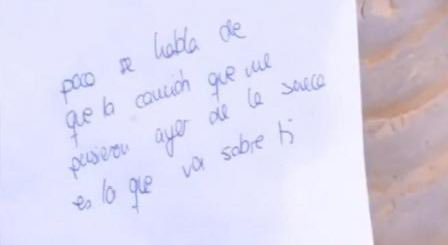 poco se habla de
que la canción que me
pusieron ayer de la sueca
es la que va sobre ti